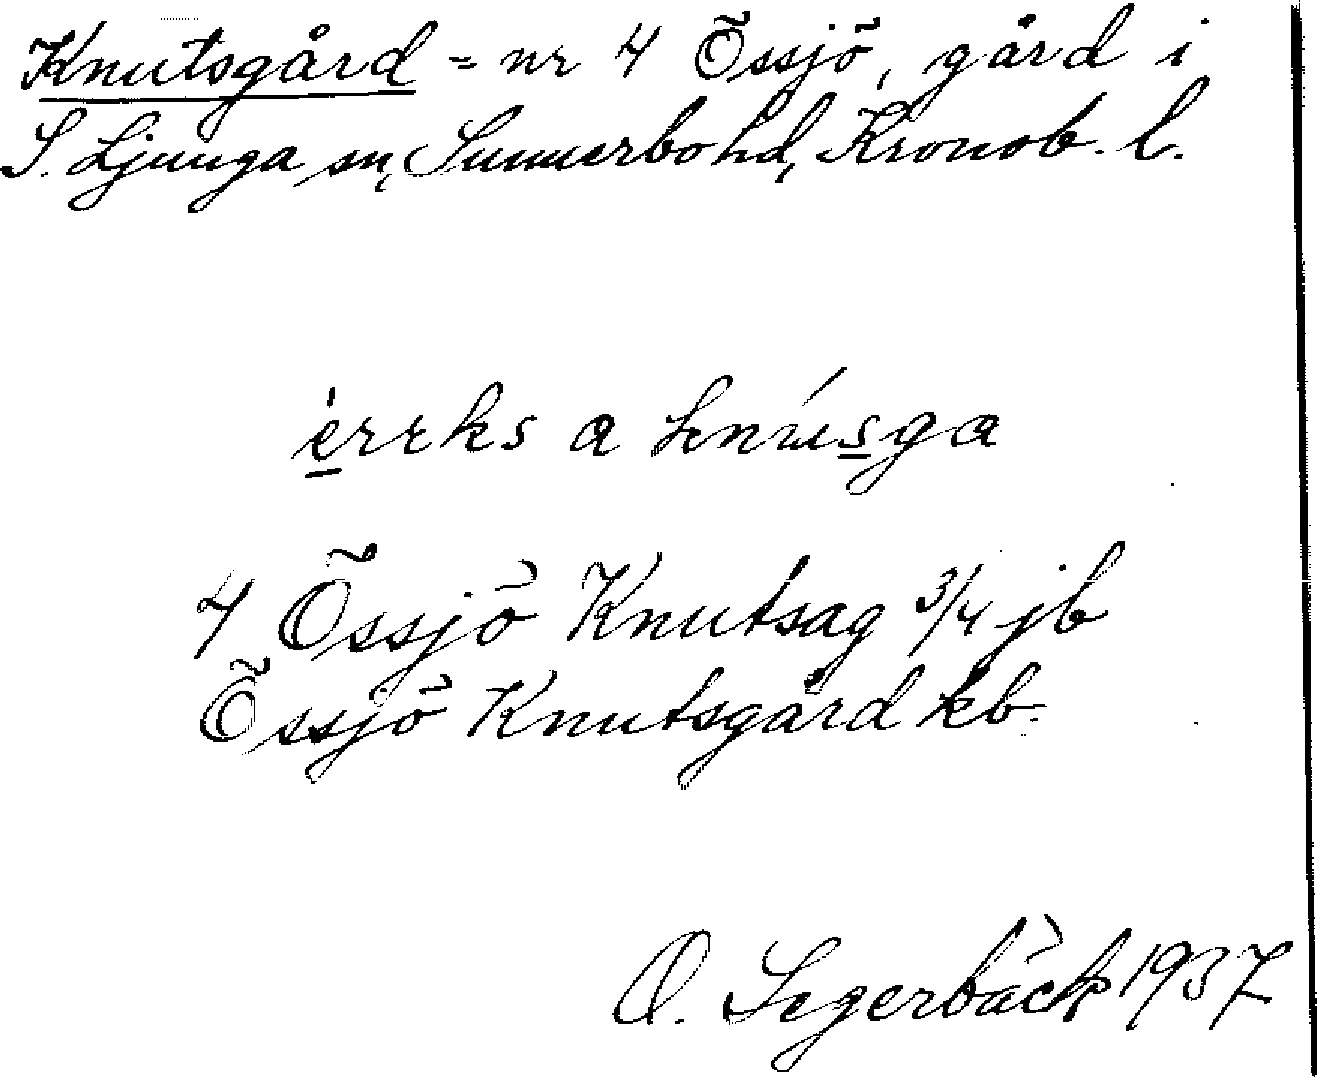 Knutsgård = nr 4 Össjö, gård i
S. Ljunga sn, Sunnerbo hd, Kronob. l.
èrrks a knúsga
4 Össjö Knutsag 3/4 jb
Össjö Knutsgård kb.
O. Segerbäck 1937